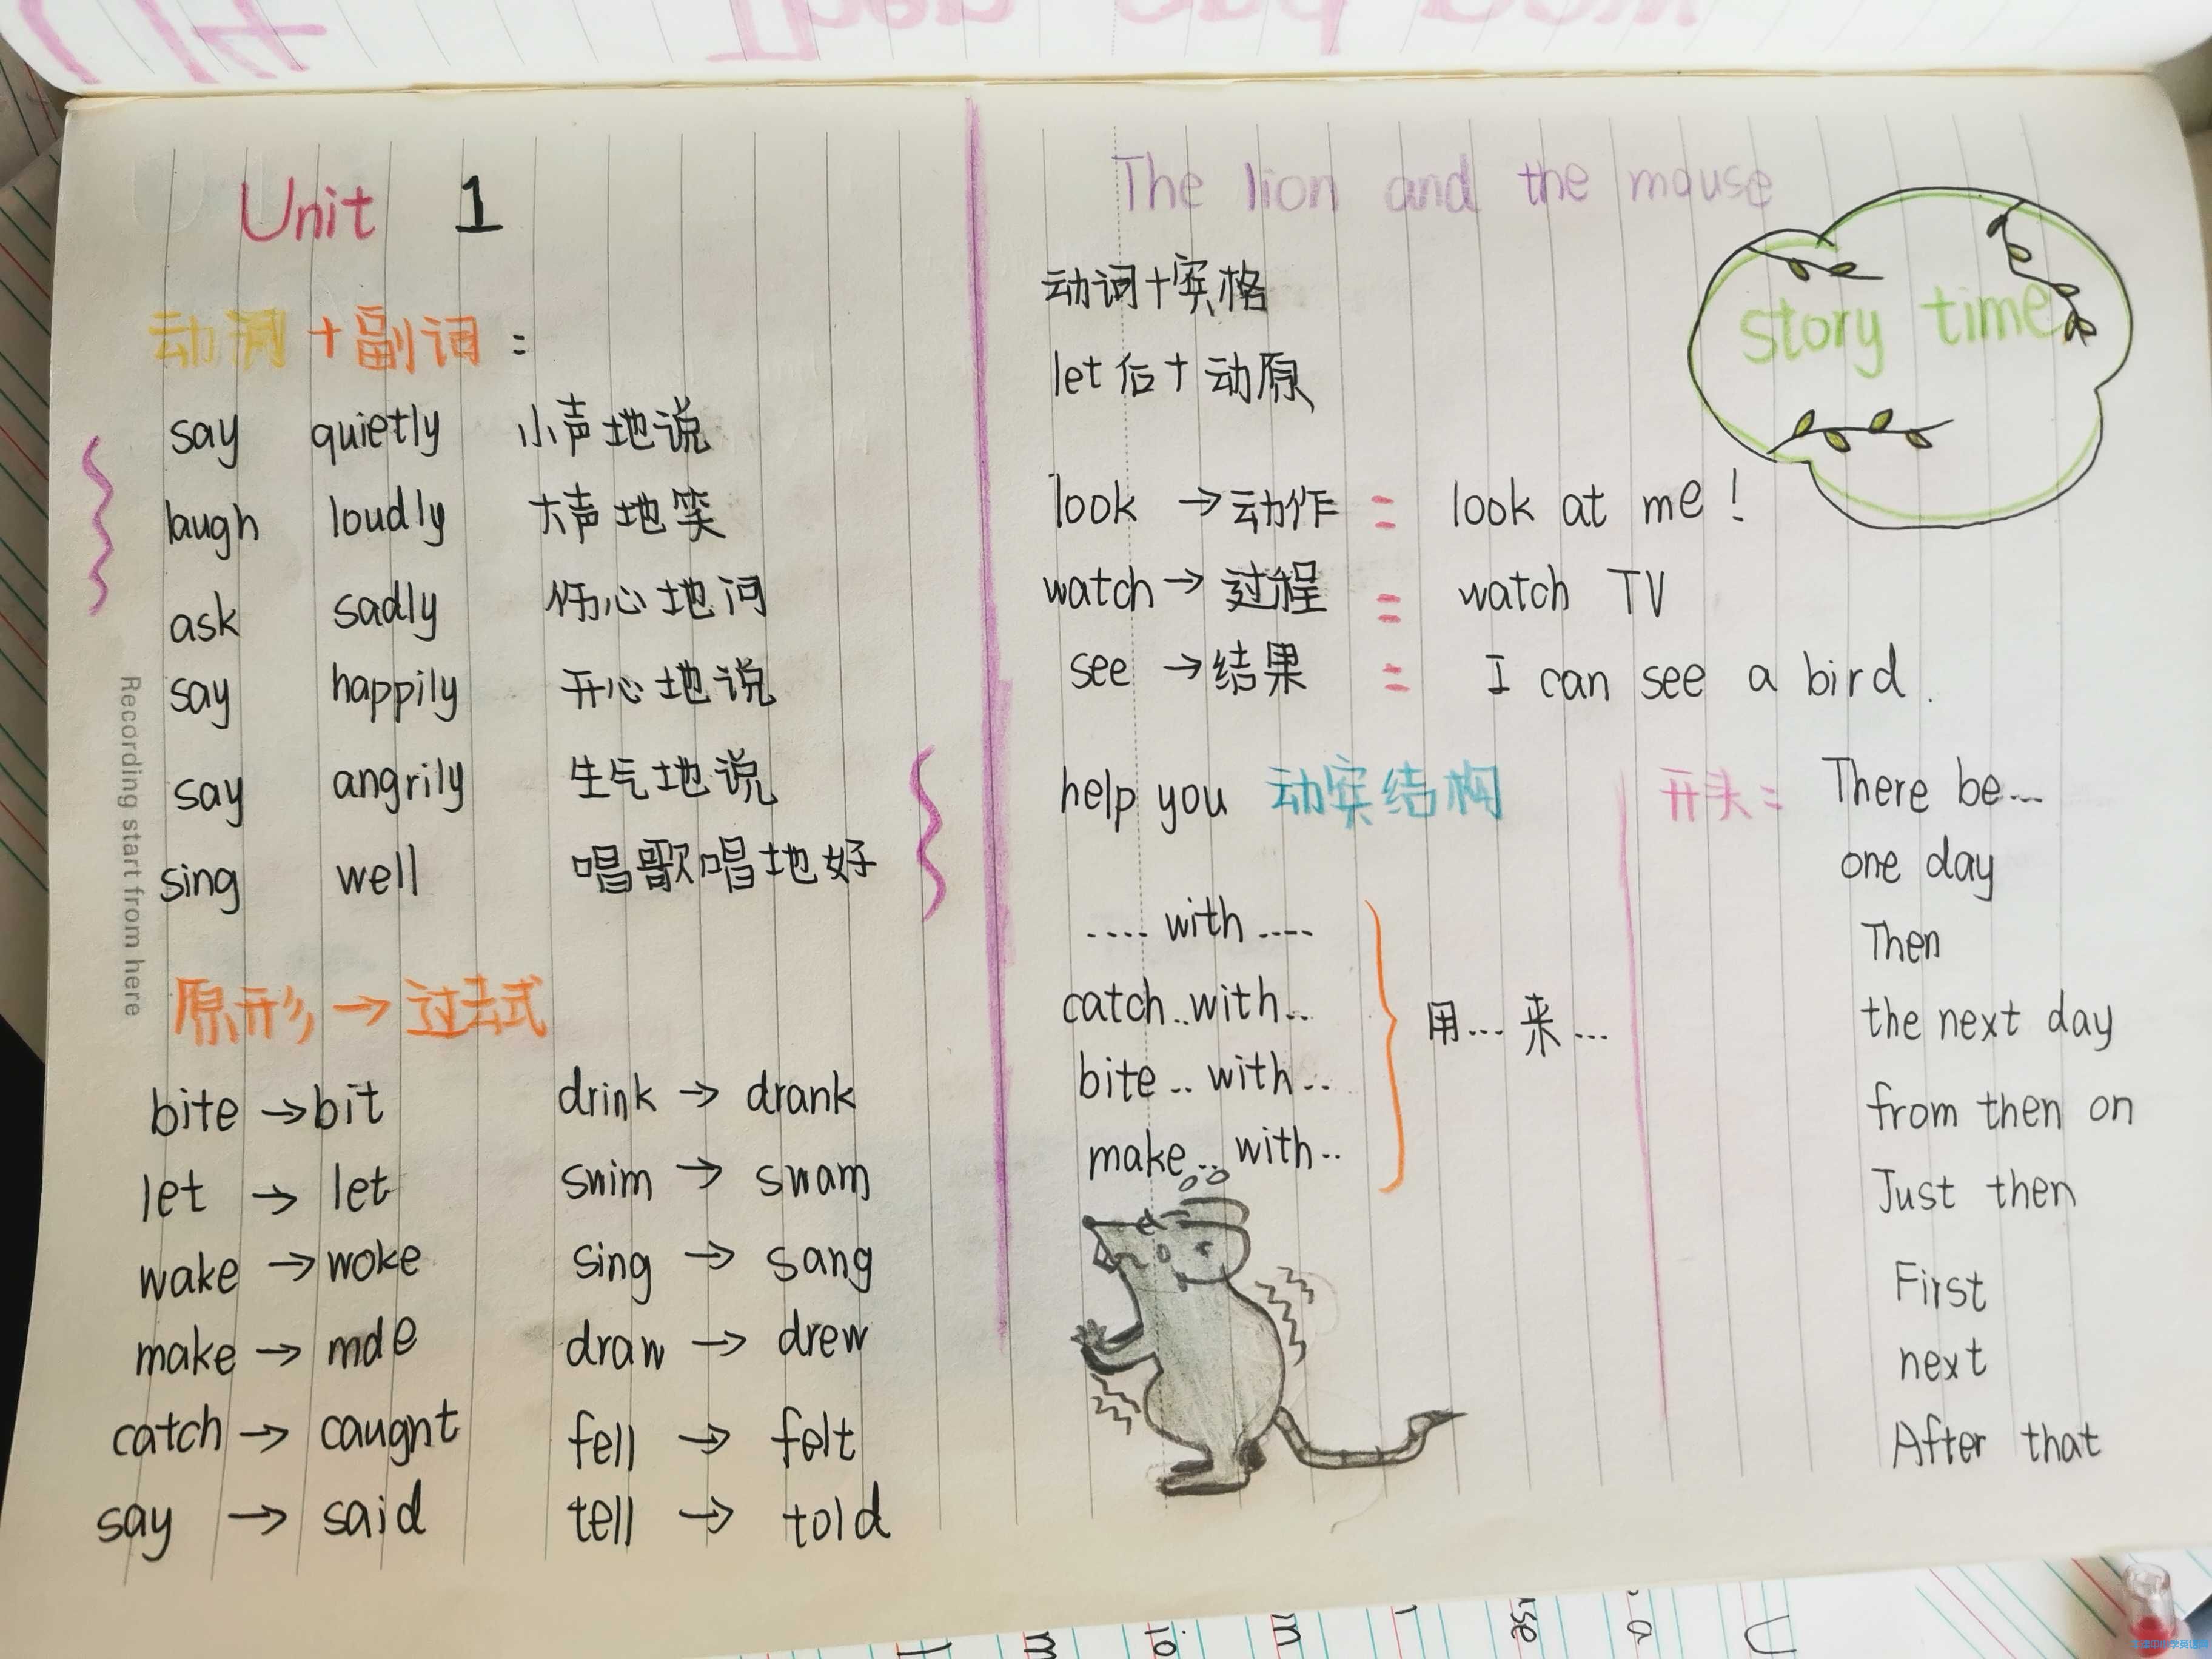 Unit 1
动词+副词:
say quietly 小声地说
laugh loudly 大声地笑
ask sadly 伤心地问
say happily 开心地说
say angrily 生气地说
sing well 唱歌唱地好
Recording start from here
原形→过去式
bite→bit
let→let
wake→woke
make→mde
catch→caugnt
say→said
drink→drank
swim→swam
sing→sang
draw→drew
fell→felt
tell→told
The lion and the mouse
story time
动词+宾格
let后+动原
look→动作= look at me!
watch→过程= watch TV
see→结果= I can see a bird.
help you 动宾结构
....with....
catch..with..
bite..with..
make..with..
用...来...
开头:
There be...
one day
Then
the next day
from then on
Just then
First
next
After that